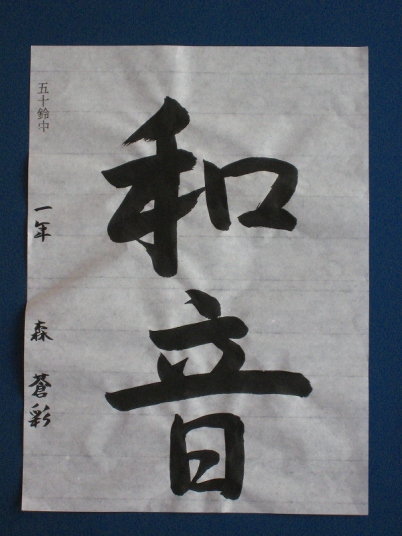 和音
五十鈴中
一年
森 蒼彩